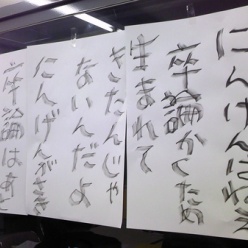 にんげんはねえ
卒論かくため
生まれて
きたんじゃ
ないんだよ
にんげんがさき
卒論はあと